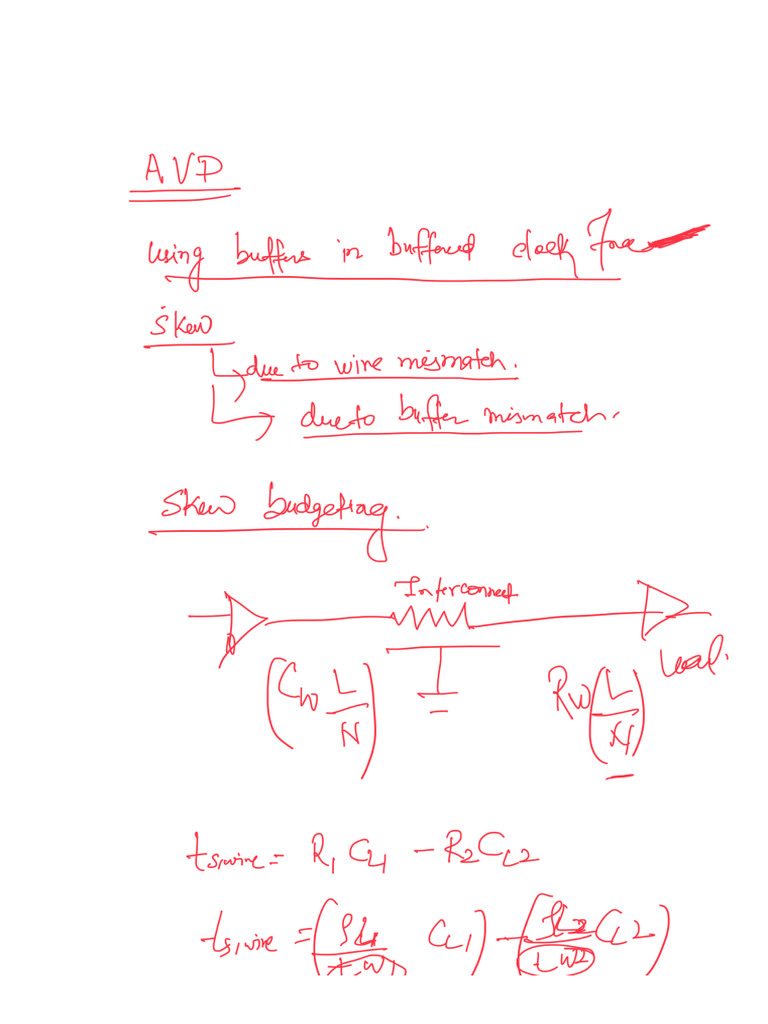 AVD
using buffers in buffered clock Tree
Skew
due to wire mismatch.
due to buffer mismatch.
Skew budgeting.
Interconnect
Load.
(C_W L/N) R_W (L/N)
t_s,wire = R_1 C_L1 - R_2 C_L2
t_s,wire = (ρL_1/(t W_1) C_L1) - (ρL_2/(t W_2) C_L2)